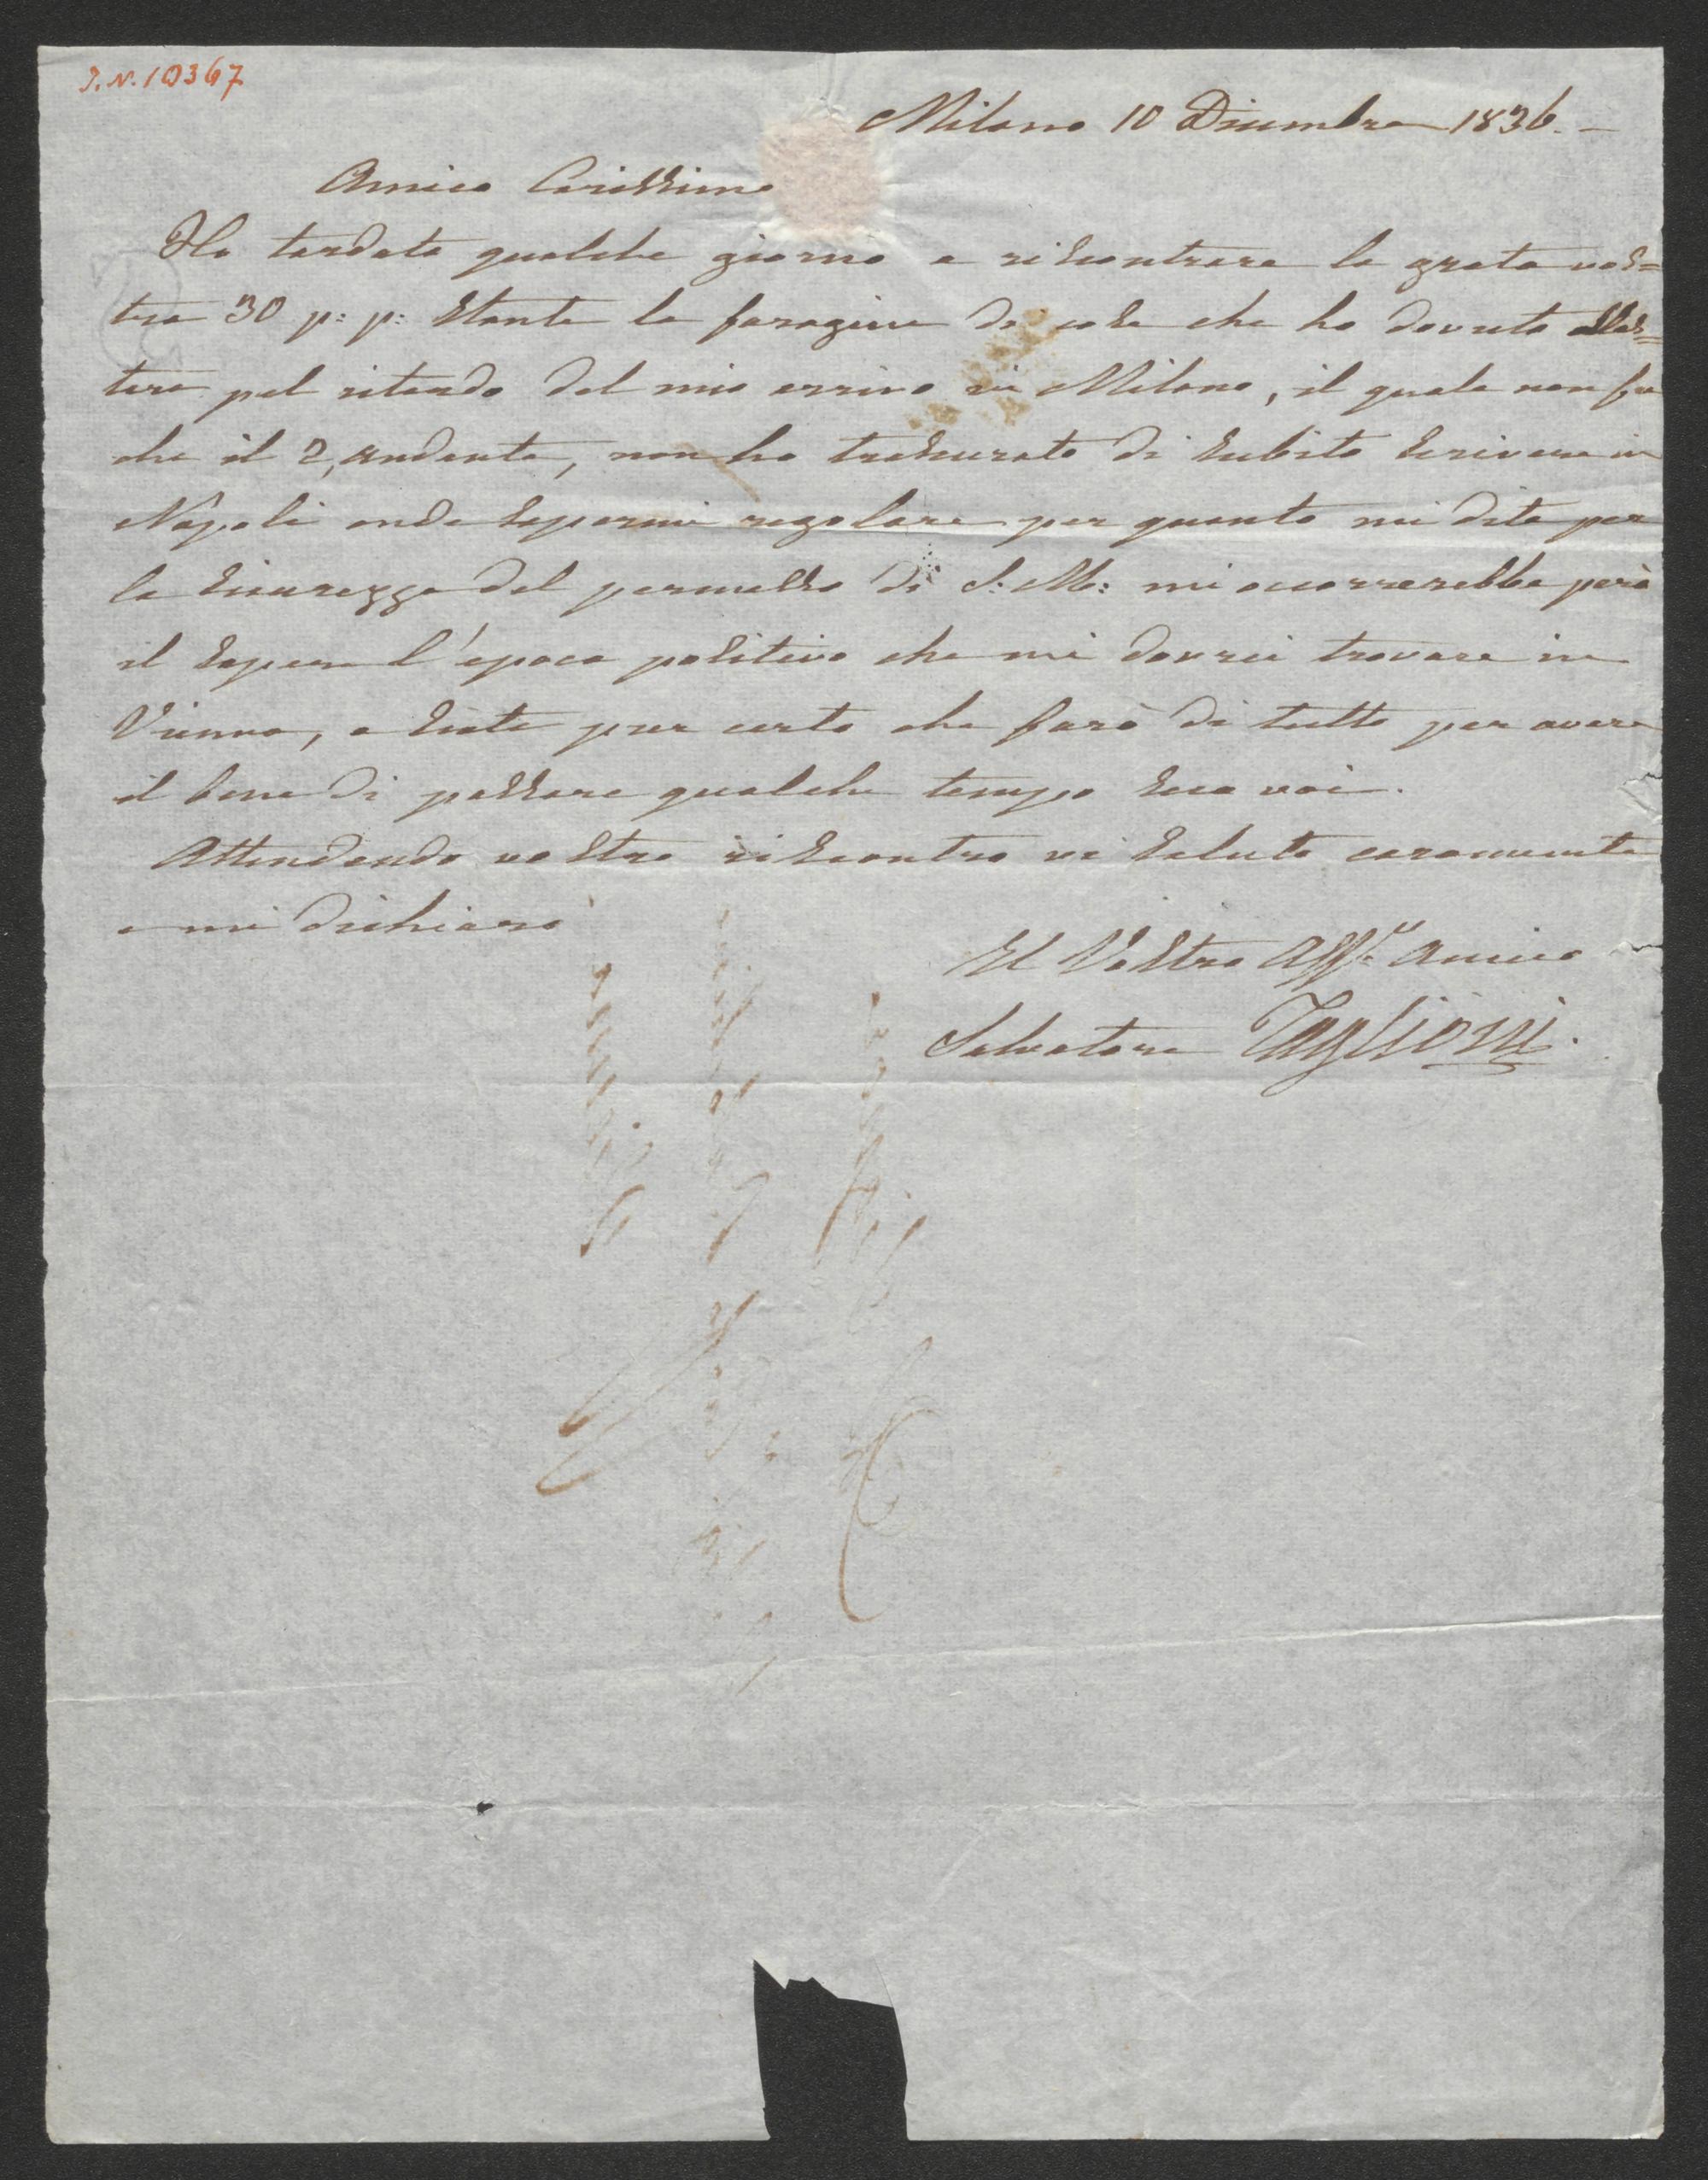 I.N. 10367
Milano 10 Dicembre 1836. –
Amico Carissimo
Ho tardato qualche giorno a riscontrare la grata vos=
tra 30 p: p: stante la faragine di cose che ho dovuto alles=
tere pel ritardo del mio arrivo in Milano, il quale non fu
che il 2, andante, non ho trascurato di subito scrivere in
Napoli onde sapermi regolare per quanto mi dite per
la sicurezza del permesso di S: M: mi occorrerebbe però
il sapere l'epoca positiva che mi dovrei trovare in
Vienna, e siate pur certo che farò di tutto per avere
il bene di passare qualche tempo seco voi.
Attendendo vostro riscontro vi saluto caramente
e mi dichiaro
Il Vostro Aff.mo Amico
Salvatore Taglioni.